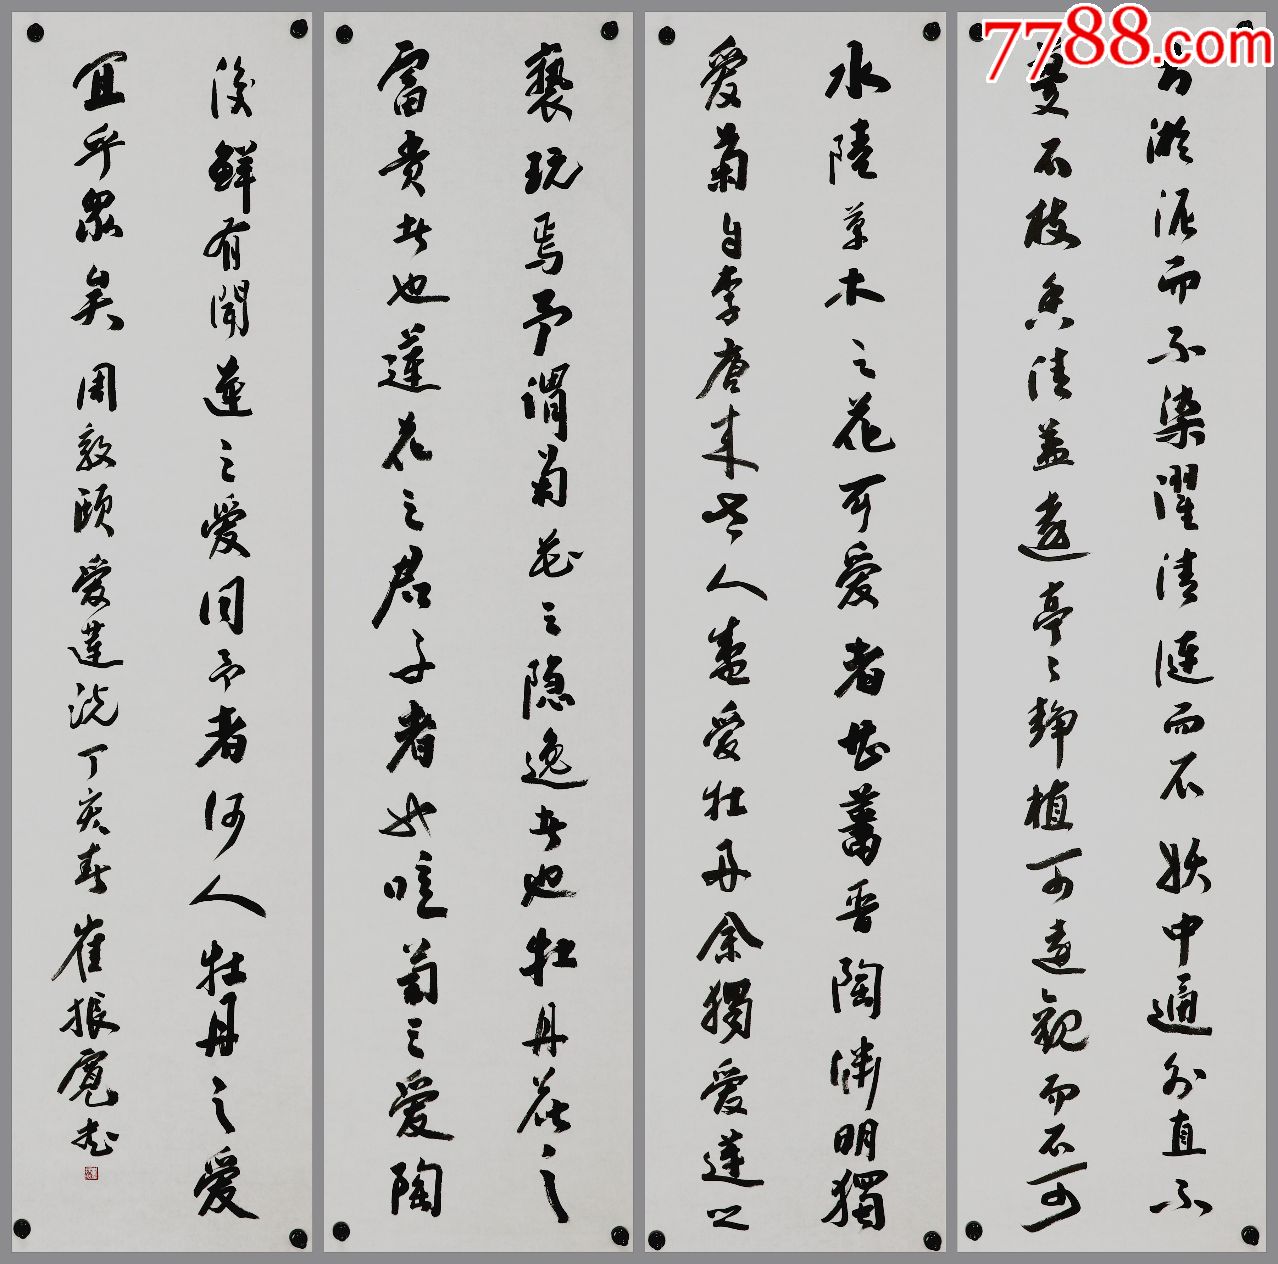 7788.com
出淤泥而不染濯清漣而不妖中通外直不
蔓不枝香清益遠亭〻静植可遠觀而不可
水陸草木之花可愛者甚蕃晋陶渊明獨
愛菊自李唐来世人盛愛牡丹余獨愛蓮之
褻玩焉予謂菊花之隐逸者也牡丹花之
富貴者也蓮花之君子者也噫菊之愛陶
後鮮有聞蓮之愛同予者何人牡丹之愛
宜乎衆矣 周敦頤愛蓮説丁亥春崔振寬書